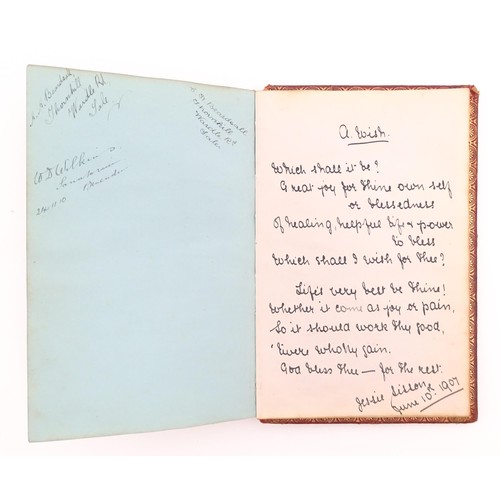 Thornhill
Wardle Rd
Sale
Thornhill
Wardle Rd
Sale
A Wish.
Which shall it be?
Great joy for thine own self
or blessedness
Of healing, helpful life & power
to bless
Which shall I wish for thee?
Life's very best be thine!
Whether it come as joy or pain,
So it should work thy good,
'Twere wholly gain.
God bless thee — for the rest.
Jessie Sisson
June 10th 1907